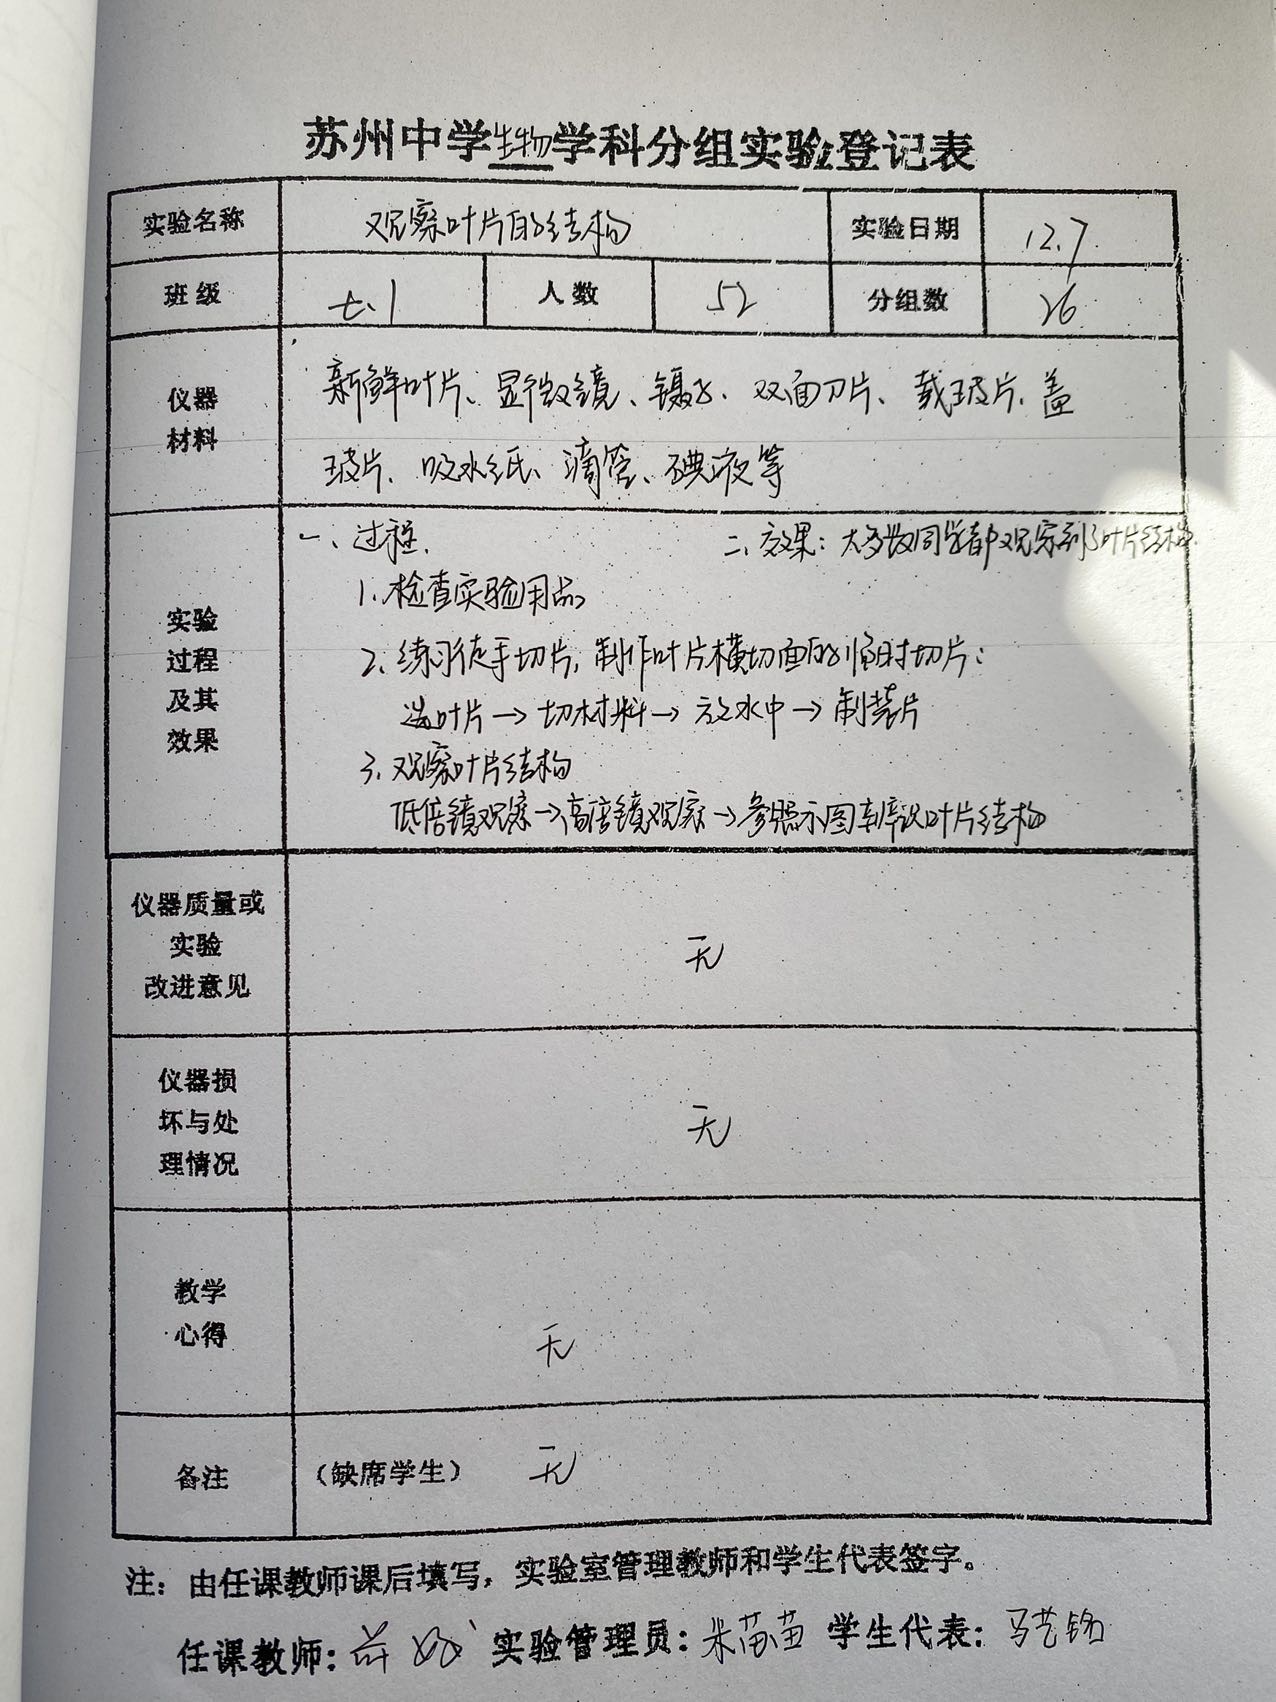 苏州中学生物学科分组实验登记表
实验名称 观察叶片的结构 实验日期 12.7.
班级 七.1 人数 52 分组数 26
仪器
材料
新鲜叶片、显微镜、镊子、双面刀片、载玻片、盖
玻片、吸水纸、滴管、碘液等
实验
过程
及其
效果
一、过程.
二、效果：大多数同学都观察到了叶片结构.
1、检查实验用品
2、练习徒手切片，制作叶片横切面的临时切片：
选叶片→切材料→放水中→制装片
3、观察叶片结构
低倍镜观察→高倍镜观察→参照示图来辨识叶片结构
仪器质量或
实验
改进意见
无
仪器损
坏与处
理情况
无
教学
心得
无
备注 （缺席学生） 无
注：由任课教师课后填写，实验室管理教师和学生代表签字。
任课教师： 实验管理员：米苗苗 学生代表：马艺铭